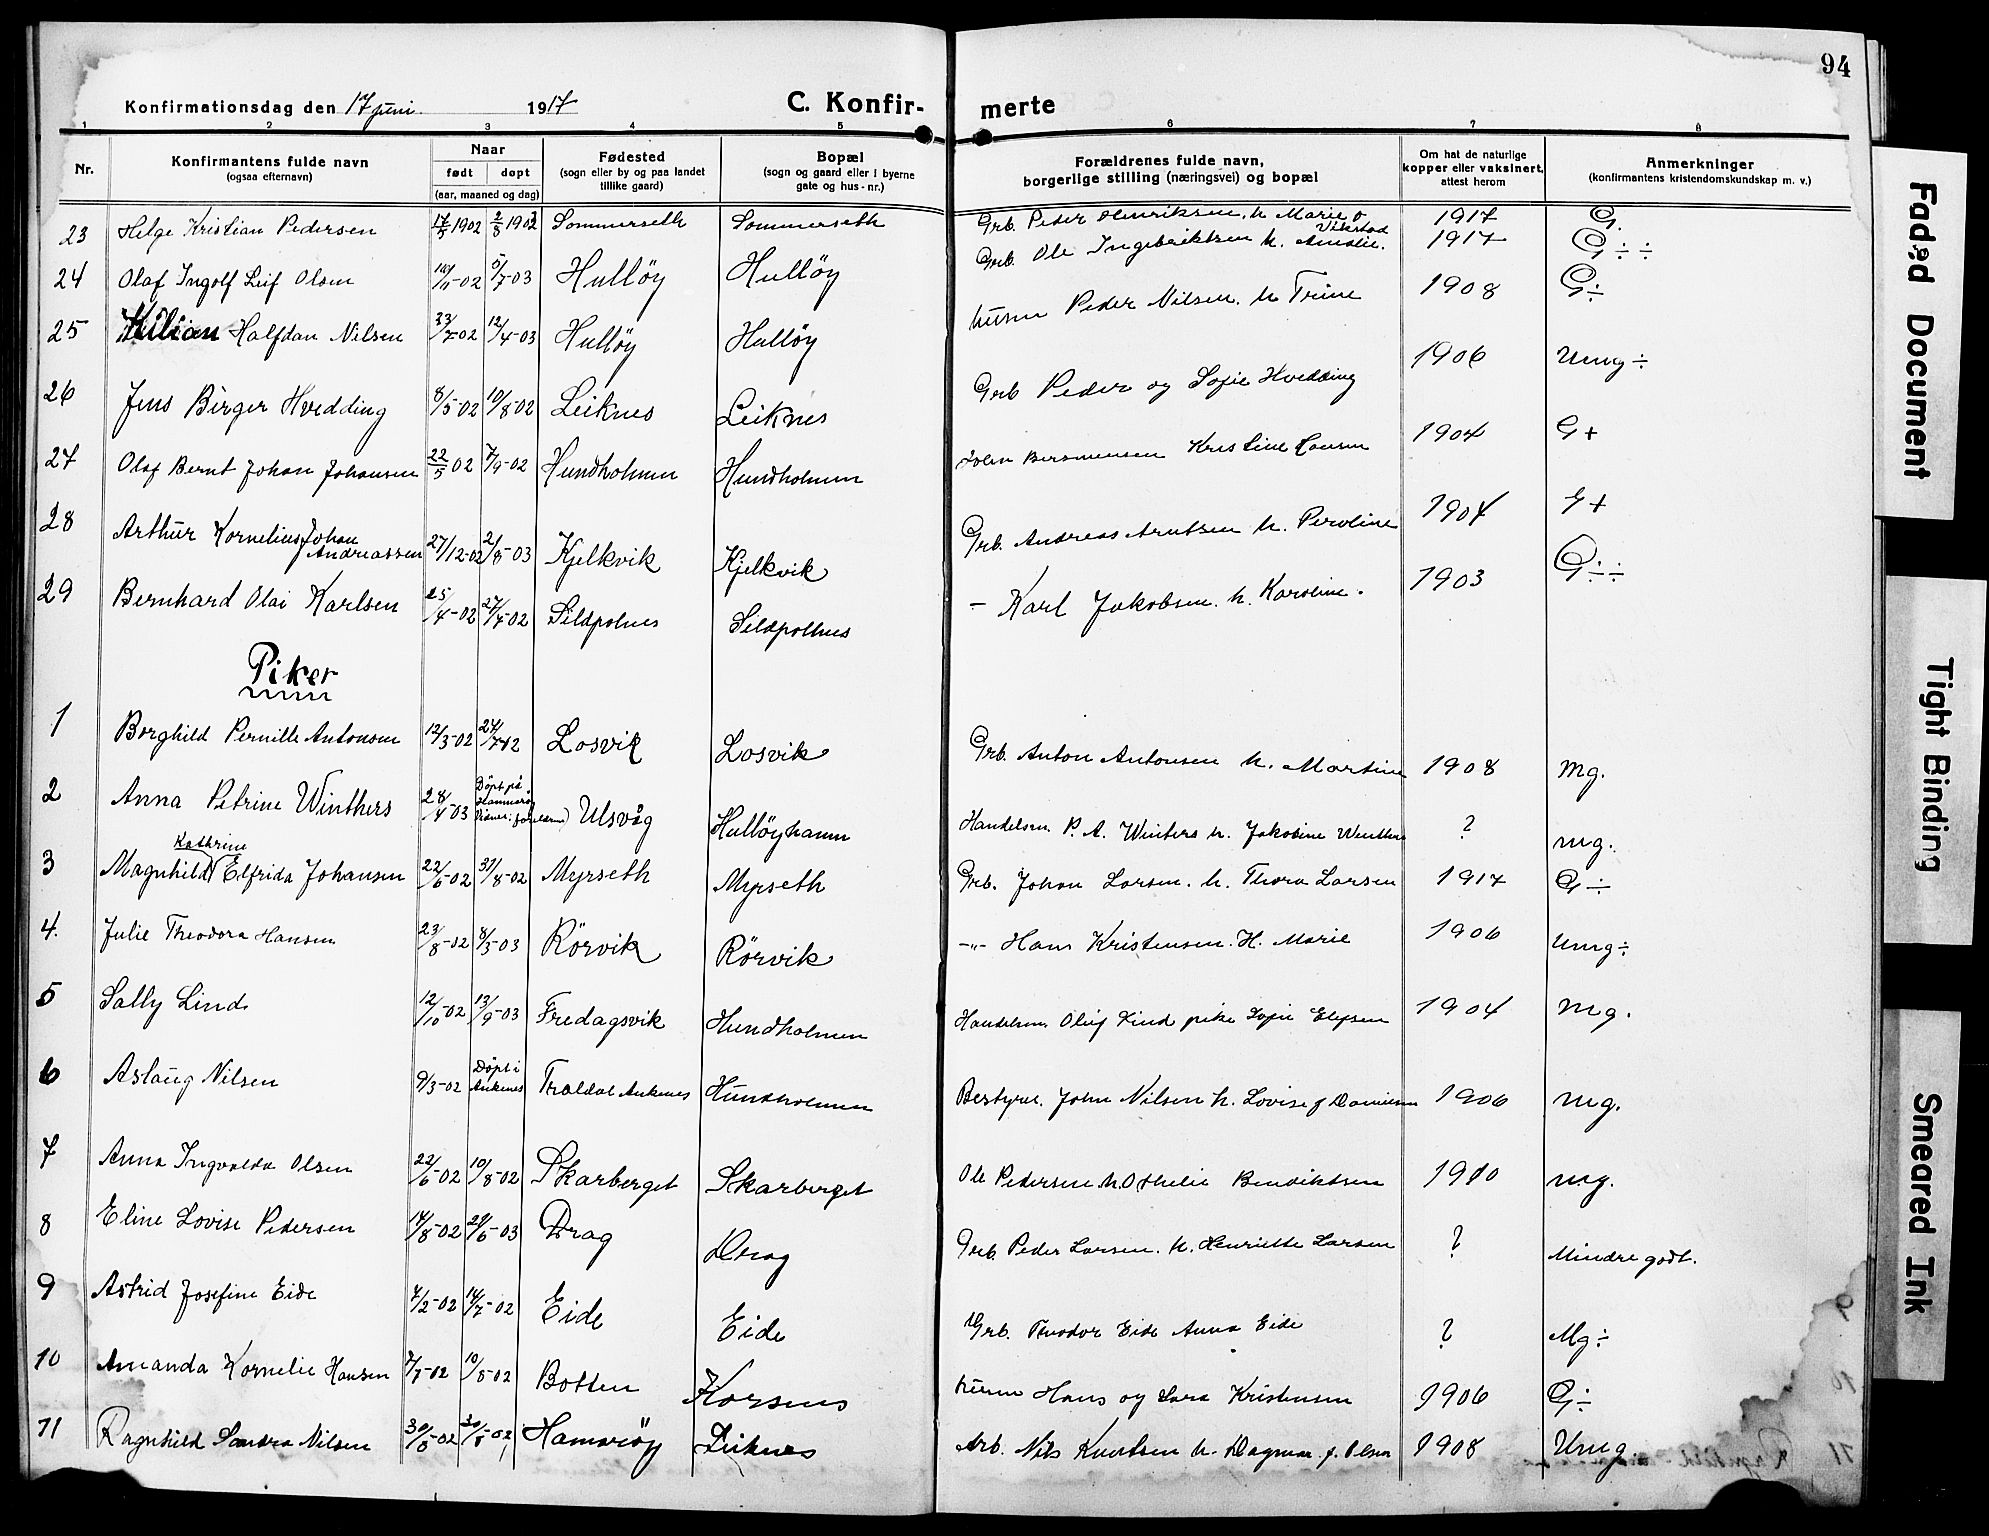 94
Konfirmationsdag den 17 juni 1917 C. Konfir- merte
1 2 3 4 5 6 7 8
Nr. Konfirmantens fulde navn (ogsaa efternavn) Naar født døpt (aar, maaned og dag) Fødested (sogn eller by og paa landet tillike gaard) Bopæl (sogn og gaard eller i byerne gate og hus-nr.) Forældrenes fulde navn, borgerlige stilling (næringsvei) og bopæl Om hat de naturlige kopper eller vaksinert, attest herom Anmerkninger (konfirmantens kristendomskundskap m. v.)
23 Helge Kristian Pedersen 17/5 1902 2/8 1902 Sommerseth Sommerseth Grb. Peder Henriksen. h. Marie Vikstad 1917 G.
24 Olaf Ingolf Leif Olsen 5/7-03 Hulløy Hulløy Grb. Ole Ingebriktsen h. Amalie. 1917 G ÷ ÷
25 Kilian Halfdan Nilsen 23/7-02 12/4-03 Hulløy Hulløy husm Peder Nilsen. h. Trine 1908 G÷
26 Jens Birger Hvedding 8/5-02 10/8-02 Leiknes Leiknes Grb Peder og Sofie Hvedding 1906 Umg ÷
27 Olaf Bernt Johan Johansen 22/5 02 7/9-02 Hundholmen Hundholmen Kristine Hansen 1904 G+
28 Arthur Kornelius Johan Andreassen 27/12-02 2/8-03 Kjelkvik Kjelkvik Grb. Andreas Arntsen h. Peroline 1904 G+
29 Bernhard Olai Karlsen 25/4-02 27/7-02 Sildpolnes Sildpollnes – Karl Jakobsen. h. Karoline. 1903 G ÷ ÷
Piker
1 Borghild Pernille Antonsen 12/3-02 Losvik Losvik Grb. Anton Antonsen h. Martine 1908 mg.
2 Anna Petrine Winthers 28/4-03 Døpt på Hamarøy Ulsvåg Hulløyhamn Handelsm. P. A. Winters h. Jakobine Winthers ? mg.
3 Magnhild Kathrine Elfrida Johansen 22/6-02 31/8-02 Myrseth Myrseth Grb. Johan Larsen. h. Thora Larsen 1917 G ÷
4. Julie Theodora Hansen 23/8-02 8/3-03 Rörvik Rörvik –„– Hans Kristensen. H. Marie 1906 Umg ÷
5 Sally Lind 12/10-02 13/9-03 Fredagsvik Hundholmen Handelsm. Oluf Lind pike Sofie Elefsen 1904 mg.
6 Aslaug Nilsen 9/3-02 Døpt i Ankenes Traldal Ankenes Hundholmen Bestyrer. John Nilsen h. Lovise f. 1906 mg.
7 Anna Ingvalda Olsen 22/6-02 10/8-02 Skarberget Skarberget Ole Pedersen h. Othelie Bendiktsen 1910 mg.
8 Eline Lovise Pedersen 14/8-02 29/6-03 Drag Drag Grb. Peder Larsen. h. Henriette Larsen ? Mindre godt.
9 Astrid Josefine Eide 7/2-02 14/7-02 Eide Eide Grb. Theodor Eide Anna Eide ? Mg ÷
10 Amanda Kornelie Hansen 7/7-02 10/8-02 Botten Korsnes husm Hans og Sara Kristensen 1906 G÷
11 Ragnhild Sandra Nilsen Hamarøy Leiknes Arb. Nils Knutsen h. Dagmar f. Olsen 1908 Umg.
Faded Document
Tight Binding
Smeared Ink